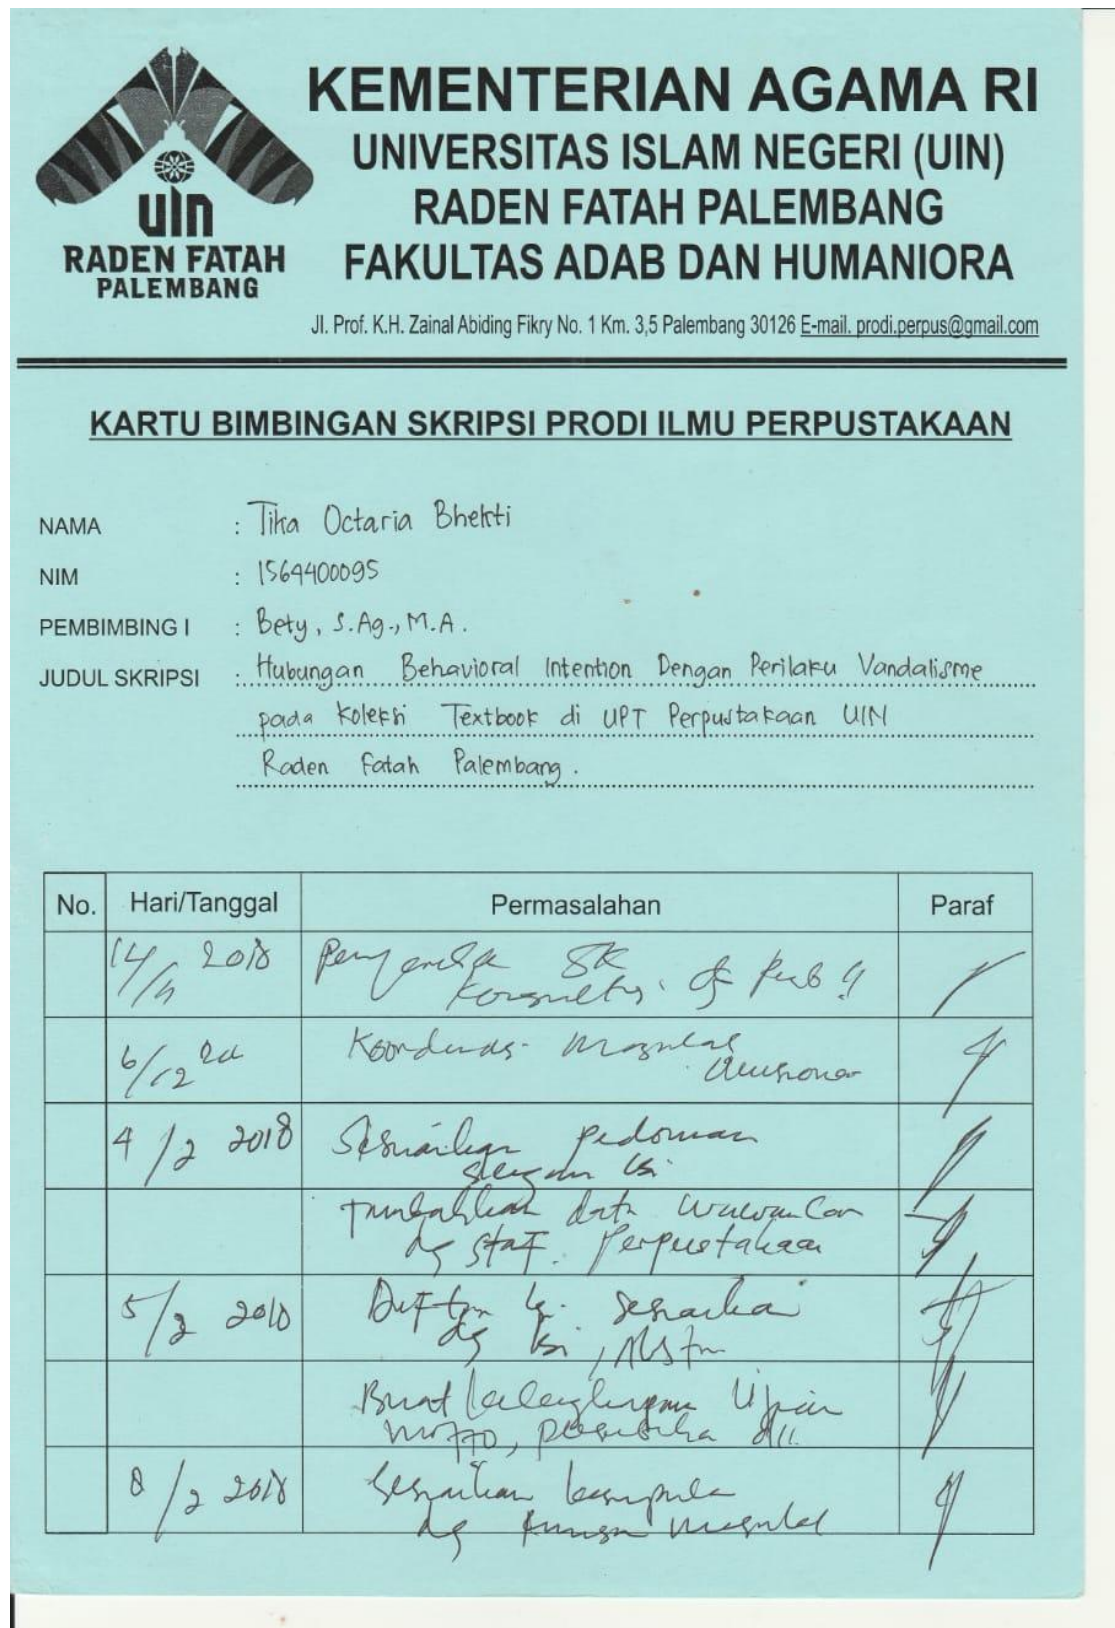 uin
RADEN FATAH
PALEMBANG
KEMENTERIAN AGAMA RI
UNIVERSITAS ISLAM NEGERI (UIN)
RADEN FATAH PALEMBANG
FAKULTAS ADAB DAN HUMANIORA
Jl. Prof. K.H. Zainal Abiding Fikry No. 1 Km. 3,5 Palembang 30126 E-mail. prodi.perpus@gmail.com
KARTU BIMBINGAN SKRIPSI PRODI ILMU PERPUSTAKAAN
NAMA : Tika Octaria Bhekti
NIM : 1564400095
PEMBIMBING I : Bety, S.Ag., M.A.
JUDUL SKRIPSI : Hubungan Behavioral Intention Dengan Perilaku Vandalisme
pada Koleksi Textbook di UPT Perpustakaan UIN
Raden Fatah Palembang.
No. Hari/Tanggal Permasalahan Paraf
2018 SK
6/12
4/2 2018 Sesuaikan pedoman
dengan isi
Tambahkan data wawancara
dg staf. Perpustakaan
5/2 2018 sesuaikan
dg isi,
Buat kelengkapan Ujian
motto, dll.
8/2 2018 Sesuaikan
dg